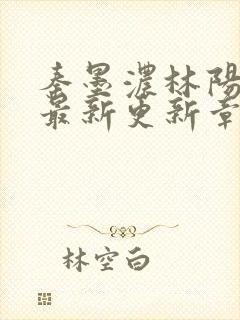 秦墨濃林陽
最新更新章
林空白